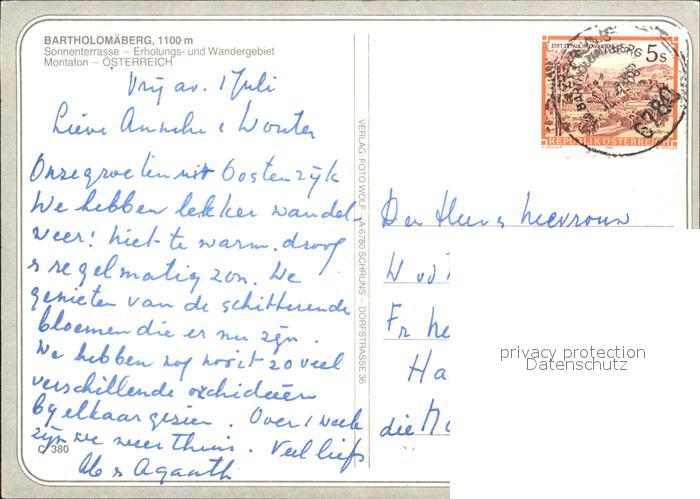 BARTHOLOMÄBERG, 1100 m
Sonnenterrasse – Erholungs- und Wandergebiet
Montafon – ÖSTERREICH
Vrij av. 1 Juli
Lieve Anneke & Wouter
Onze groeten uit Oostenrijk
We hebben lekker wandel-
weer! Niet te warm, droog
& regelmatig zon. We
genieten van de schitterende
bloemen die er nu zijn.
We hebben nog nooit zoveel
verschillende orchideeën
bij elkaar gezien. Over 1 week
zijn we weer thuis. Veel liefs
& Agaath
C 380
VERLAG FOTO WOLF, A-6780 SCHRUNS – DORFSTRASSE 36
5 S
REPUBLIK ÖSTERREICH
BARTHOLOMÄBERG
6780
Den Heer & Mevrouw
Fr He
Ha
die
privacy protection
Datenschutz